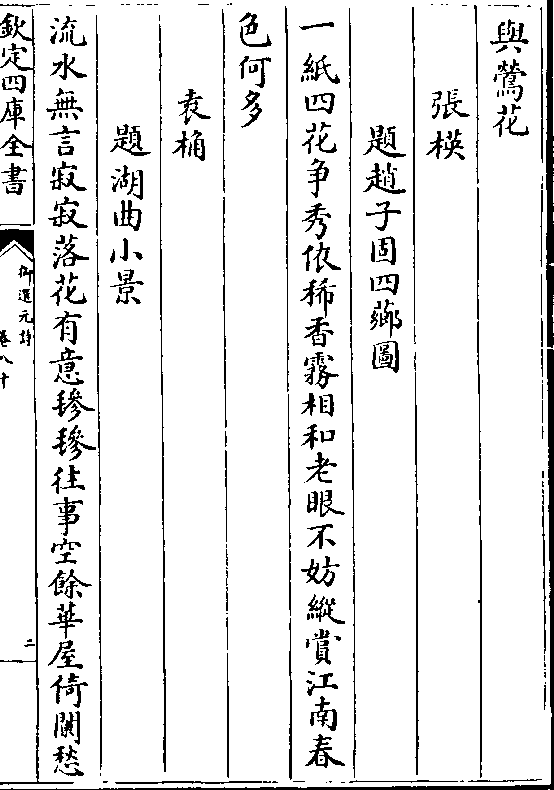 與鶯花
張模
題趙子固四薌圖
一紙四花争秀依稀香霧相和老眼不妨縱賞江南春
色何多
袁桷
題湖曲小景
流水無言寂寂落花有意毶毶往事空餘華屋倚闌愁
欽定四庫全書
御選元詩
卷八十
二